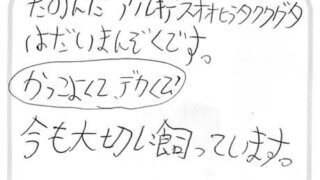 たのんだ アルキデスオオヒラタクワガタ
はだいまんぞくです。
かっこよくて、デカくて!
今も大切に飼っています。